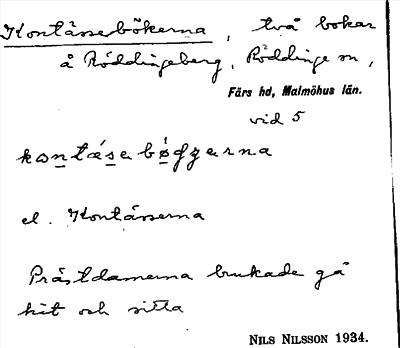 Kontässebökerna, två bokar
å Röddingeberg, Röddinge sn,
Färs hd, Malmöhus län.
vid 5
kontæsebøgzerna
el. Kontässerna
Prästdamerna brukade gå
hit och sitta
NILS NILSSON 1934.